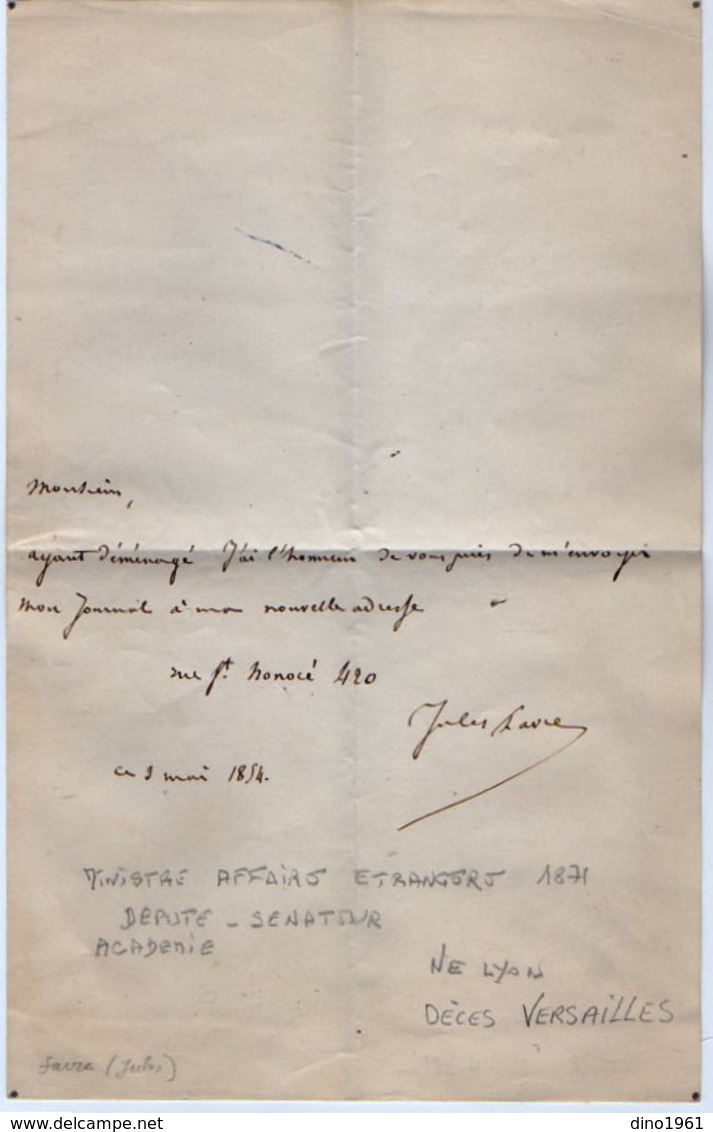 Monsieur,
ayant déménagé J'ai l'honneur de vous prier de m'envoyer
mon Journal à ma nouvelle adresse
rue St. honoré 420
Jules Favre
ce 9 mai 1854.
MINISTRE AFFAIRS ETRANGERS 1871
DEPUTE - SENATEUR
ACADEMIE
NE LYON
DÈCES VERSAILLES
favre (Jules)
delcampe.net
dino1961